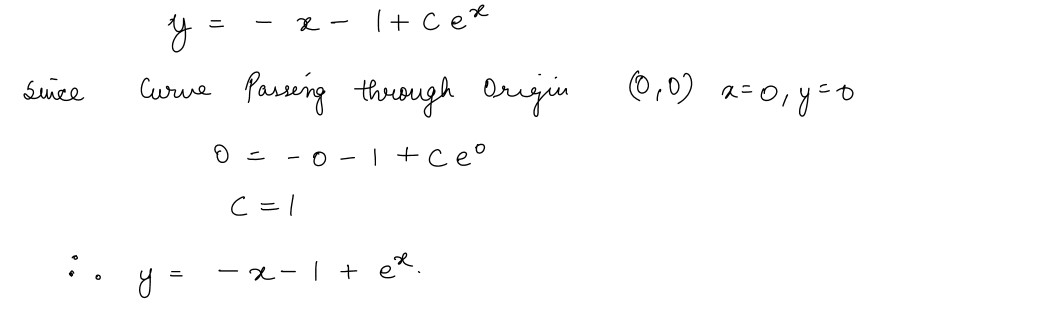 y = - x - 1 + c e^x
Since Curve Passing through Origin (0,0) x=0, y=0
0 = - 0 - 1 + c e^0
C = 1
∴ y = - x - 1 + e^x.